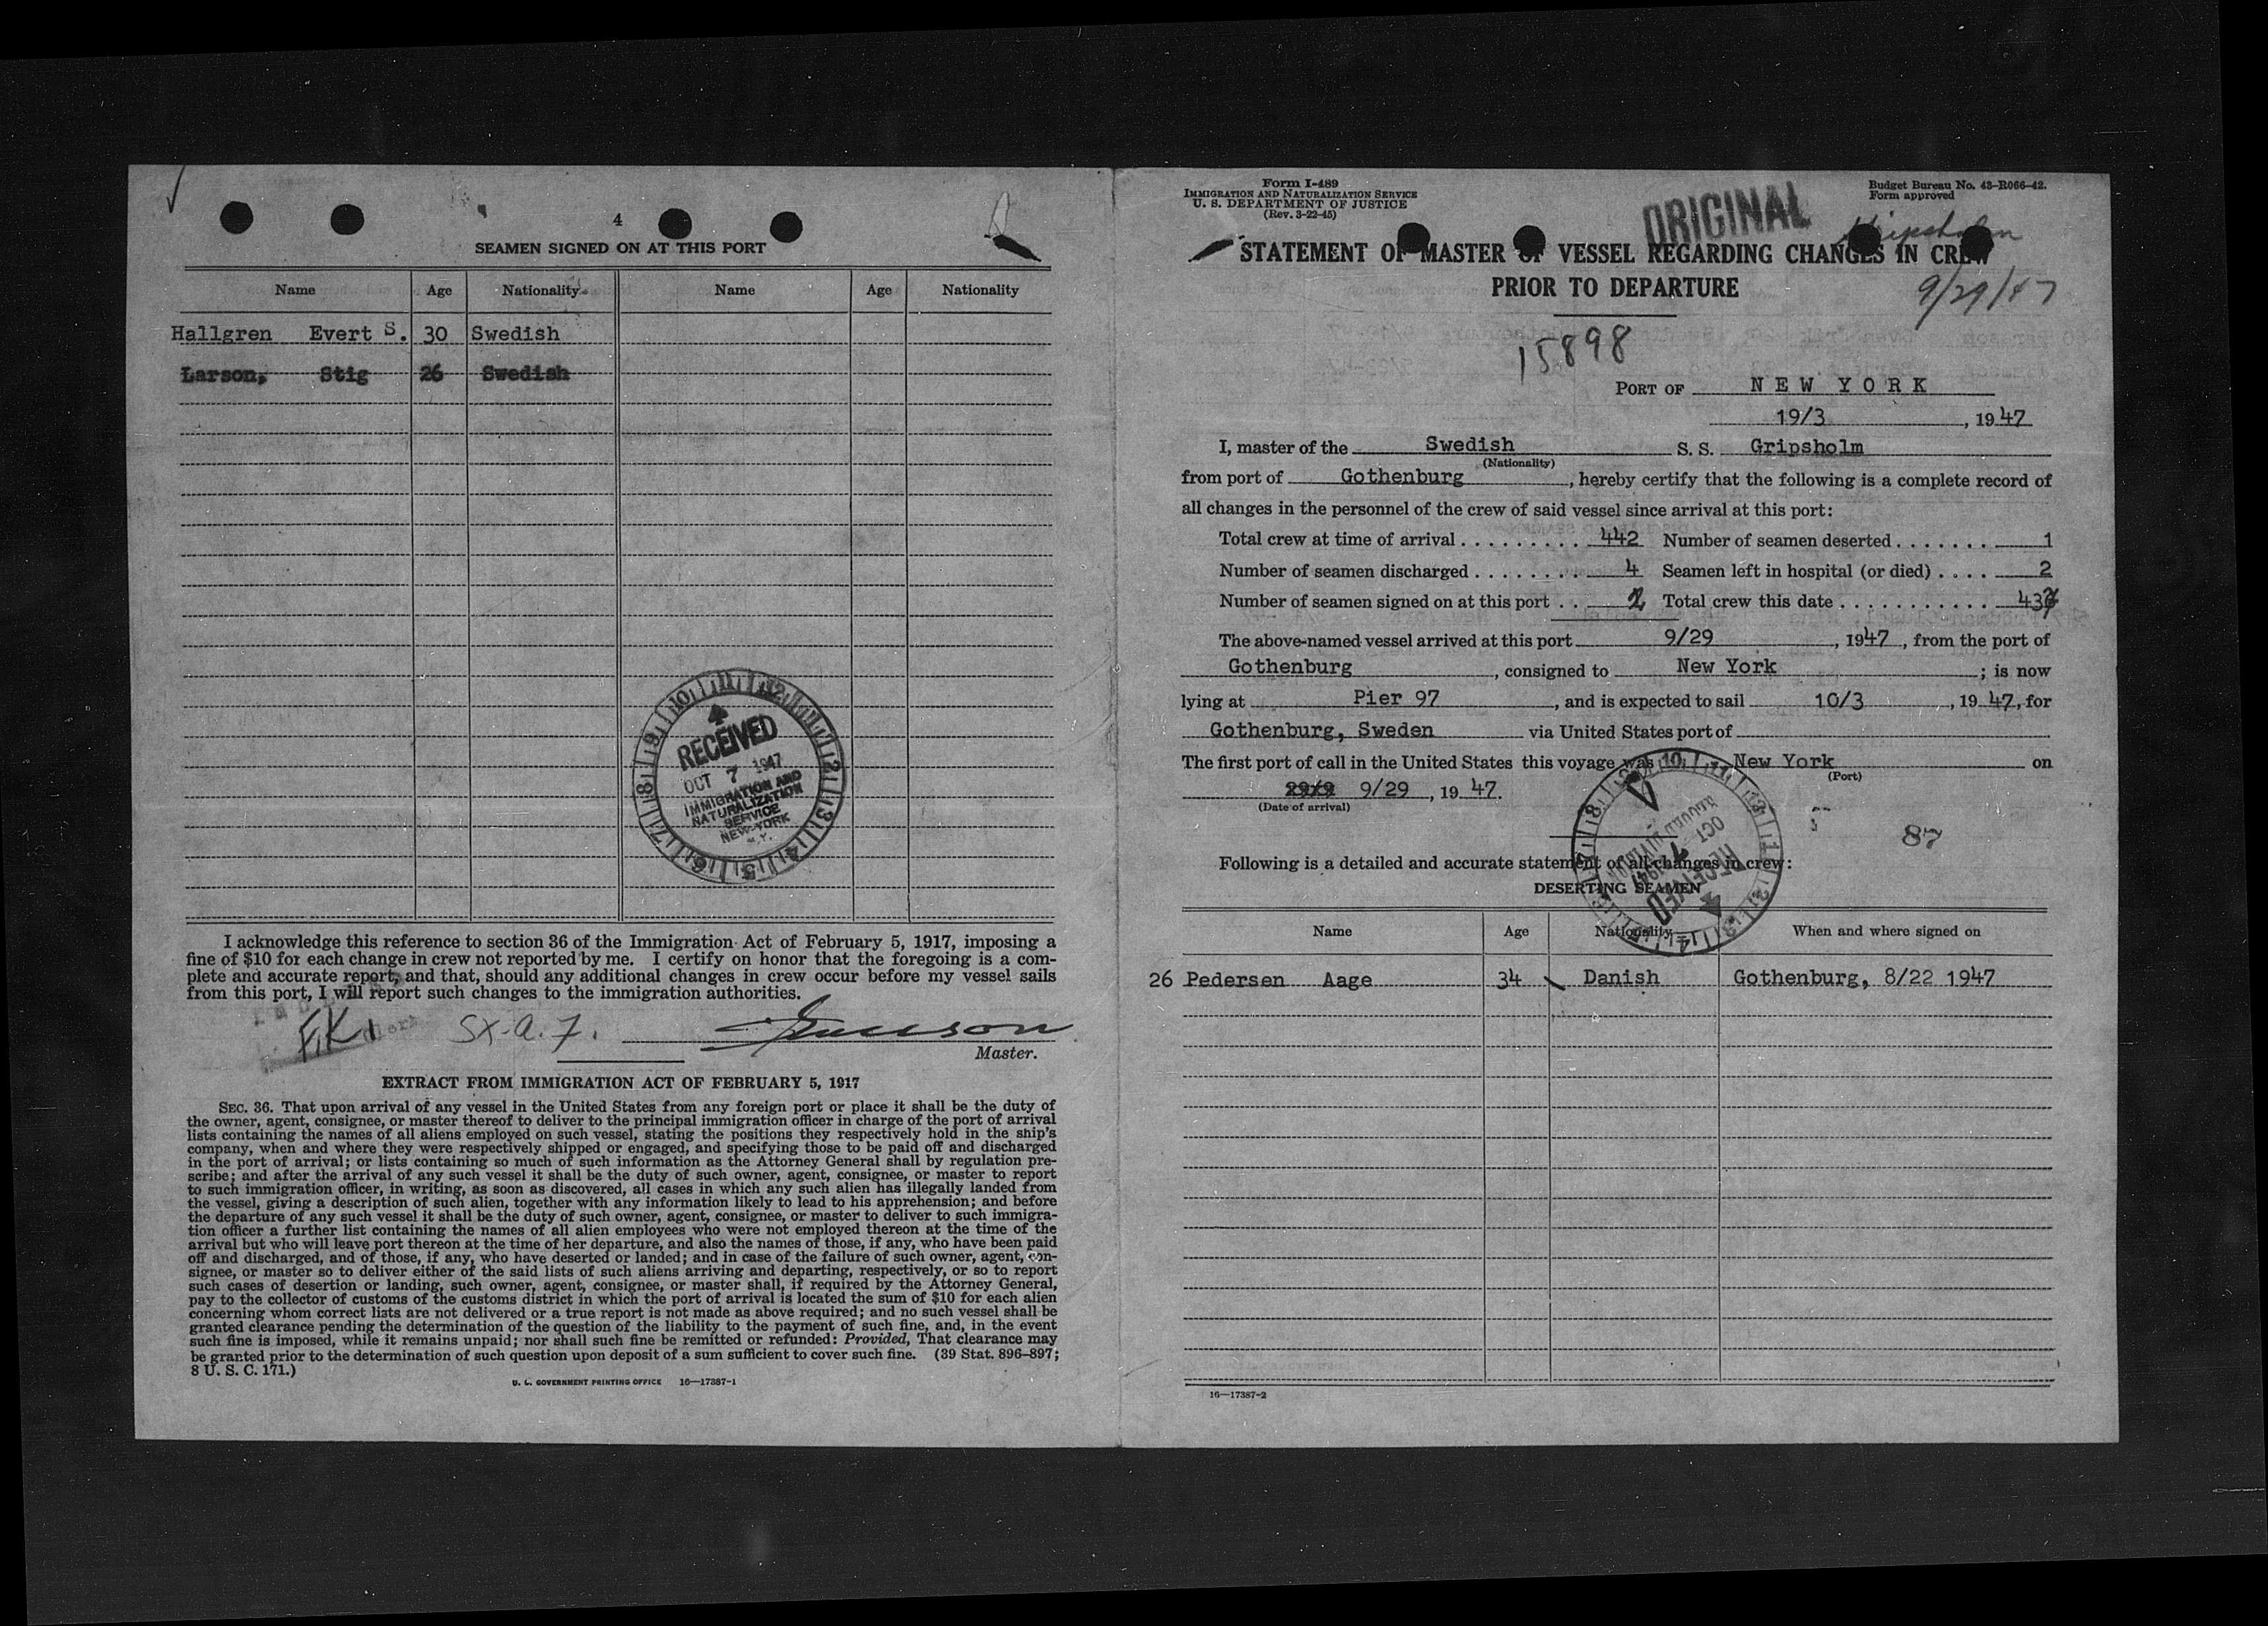 4
SEAMEN SIGNED ON AT THIS PORT
Name Age Nationality Name Age Nationality
Hallgren Evert S. 30 Swedish
Larson, Stig 26 Swedish
RECEIVED
OCT 7 1947
IMMIGRATION AND
NATURALIZATION
SERVICE
NEW YORK
N.Y.
I acknowledge this reference to section 36 of the Immigration Act of February 5, 1917, imposing a
fine of $10 for each change in crew not reported by me. I certify on honor that the foregoing is a com-
plete and accurate report, and that, should any additional changes in crew occur before my vessel sails
from this port, I will report such changes to the immigration authorities.
F.K. SX-a.7.
Master.
EXTRACT FROM IMMIGRATION ACT OF FEBRUARY 5, 1917
SEC. 36. That upon arrival of any vessel in the United States from any foreign port or place it shall be the duty of
the owner, agent, consignee, or master thereof to deliver to the principal immigration officer in charge of the port of arrival
lists containing the names of all aliens employed on such vessel, stating the positions they respectively hold in the ship's
company, when and where they were respectively shipped or engaged, and specifying those to be paid off and discharged
in the port of arrival; or lists containing so much of such information as the Attorney General shall by regulation pre-
scribe; and after the arrival of any such vessel it shall be the duty of such owner, agent, consignee, or master to report
to such immigration officer, in writing, as soon as discovered, all cases in which any such alien has illegally landed from
the vessel, giving a description of such alien, together with any information likely to lead to his apprehension; and before
the departure of any such vessel it shall be the duty of such owner, agent, consignee, or master to deliver to such immigra-
tion officer a further list containing the names of all alien employees who were not employed thereon at the time of the
arrival but who will leave port thereon at the time of her departure, and also the names of those, if any, who have been paid
off and discharged, and of those, if any, who have deserted or landed; and in case of the failure of such owner, agent, con-
signee, or master so to deliver either of the said lists of such aliens arriving and departing, respectively, or so to report
such cases of desertion or landing, such owner, agent, consignee, or master shall, if required by the Attorney General,
pay to the collector of customs of the customs district in which the port of arrival is located the sum of $10 for each alien
concerning whom correct lists are not delivered or a true report is not made as above required; and no such vessel shall be
granted clearance pending the determination of the question of the liability to the payment of such fine, and, in the event
such fine is imposed, while it remains unpaid; nor shall such fine be remitted or refunded: Provided, That clearance may
be granted prior to the determination of such question upon deposit of a sum sufficient to cover such fine. (39 Stat. 896-897;
8 U. S. C. 171.)
U. S. GOVERNMENT PRINTING OFFICE 16—17387-1
Form I-489
IMMIGRATION AND NATURALIZATION SERVICE
U. S. DEPARTMENT OF JUSTICE
(Rev. 3-22-45)
Budget Bureau No. 43-R066-42.
Form approved
ORIGINAL
Gripsholm
STATEMENT OF MASTER OF VESSEL REGARDING CHANGES IN CREW
PRIOR TO DEPARTURE
9/29/47
15898
PORT OF NEW YORK
19/3, 1947
I, master of the Swedish S. S. Gripsholm
(Nationality)
from port of Gothenburg, hereby certify that the following is a complete record of
all changes in the personnel of the crew of said vessel since arrival at this port:
Total crew at time of arrival 442 Number of seamen deserted 1
Number of seamen discharged 4 Seamen left in hospital (or died) 2
Number of seamen signed on at this port 2 Total crew this date 437
The above-named vessel arrived at this port 9/29, 1947, from the port of
Gothenburg, consigned to New York; is now
lying at Pier 97, and is expected to sail 10/3, 1947, for
Gothenburg, Sweden via United States port of
The first port of call in the United States this voyage was New York on
(Port)
29/9 9/29, 1947.
(Date of arrival)
87
RECEIVED
OCT 7 1947
Following is a detailed and accurate statement of all changes in crew:
DESERTING SEAMEN
Name Age Nationality When and where signed on
26 Pedersen Aage 34 Danish Gothenburg, 8/22 1947
16—17387-2